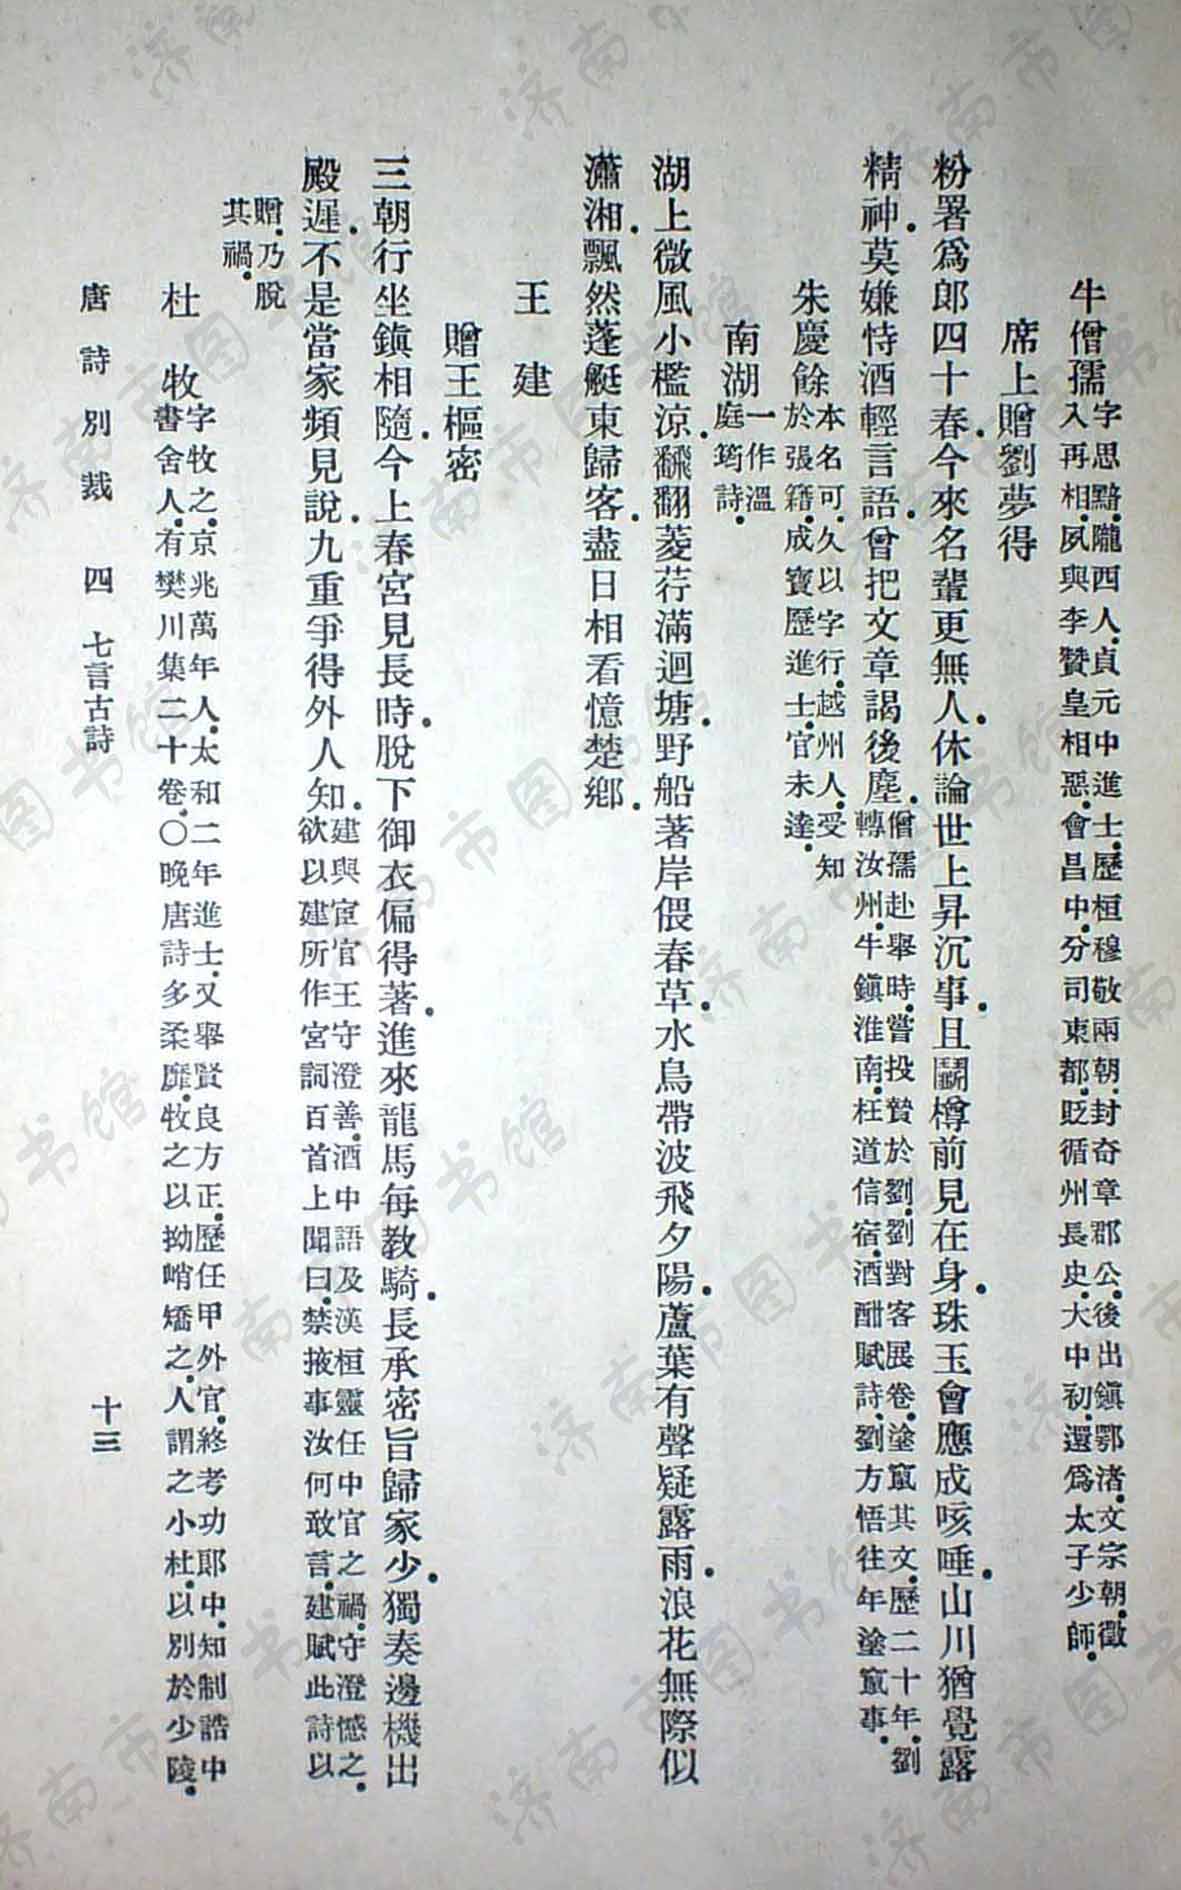 牛僧孺
字思黯.隴西人.貞元中進士.歷桓穆敬兩朝.封奇章郡公.後出鎭鄂渚.文宗朝.徵
入再相.夙與李贊皇相惡.會昌中.分司東都.貶循州長史.大中初.還爲太子少師.
席上贈劉夢得
粉署爲郎四十春.今來名輩更無人.休論世上昇沉事.且鬭樽前見在身.珠玉會應成咳唾.山川猶覺露
精神.莫嫌恃酒輕言語.曾把文章謁後塵.
僧孺赴舉時.嘗投贄於劉.劉對客展卷.塗竄其文.歷二十年.劉
轉汝州.牛鎭淮南.枉道信宿.酒酣賦詩.劉方悟往年塗竄事.
朱慶餘
本名可久.以字行.越州人.受知
於張籍.成寶歷進士.官未達.
南湖
一作溫
庭筠詩.
湖上微風小檻涼.翻翻菱荇滿迴塘.野船著岸偎春草.水鳥帶波飛夕陽.蘆葉有聲疑露雨.浪花無際似
瀟湘.飄然蓬艇東歸客.盡日相看憶楚鄕.
王建
贈王樞密
三朝行坐鎭相隨.今上春宮見長時.脫下御衣偏得著.進來龍馬每敎騎.長承密旨歸家少.獨奏邊機出
殿遲.不是當家頻見說.九重爭得外人知.
建與宦官王守澄善.酒中語及漢桓靈任中官之禍.守澄憾之.
欲以建所作宮詞百首上聞曰.禁掖事汝何敢言.建賦此詩以
贈.乃脫
其禍.
杜牧
字牧之.京兆萬年人.太和二年進士.又舉賢良方正.歷任甲外官.終考功郎中.知制誥中
書舍人.有樊川集二十卷.〇晚唐詩多柔靡.牧之以拗峭矯之.人謂之小杜.以別於少陵.
唐詩別裁 四 七言古詩 十三
济南市图书馆